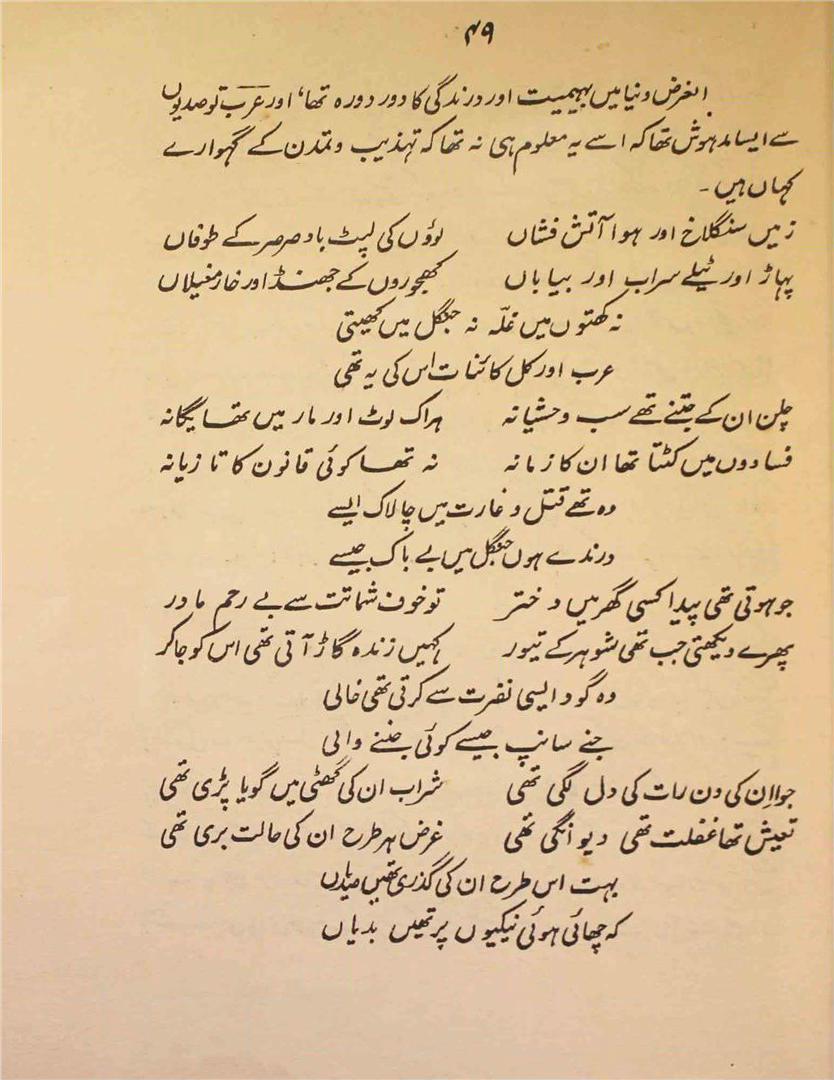 ۴۹
الغرض دنیا میں بہیمیت اور درندگی کا دور دورہ تھا، اور عرب تو صدیوں
سے ایسا مدہوش تھا کہ اسے یہ معلوم ہی نہ تھا کہ تہذیب و تمدن کے گہوارے
کہاں ہیں۔
زمیں سنگلاخ اور ہوا آتش فشاں لوؤں کی لپٹ باد صرصر کے طوفاں
پہاڑ اور ٹیلے سراب اور بیاباں کھجوروں کے جھنڈ اور خار مغیلاں
نہ کھتوں میں غلّہ نہ جنگل میں کھیتی
عرب اور کل کائنات اس کی یہ تھی
چلن ان کے جتنے تھے سب وحشیانہ ہر اک لوٹ اور مار میں تھا یگانہ
فسادوں میں کٹتا تھا ان کا زمانہ نہ تھا کوئی قانون کا تازیانہ
وہ تھے قتل و غارت میں چالاک ایسے
درندے ہوں جنگل میں بے باک جیسے
جو ہوتی تھی پیدا کسی گھر میں دختر تو خوف شماتت سے بے رحم مادر
پھرے دیکھتی جب تھی شوہر کے تیور کہیں زندہ گاڑ آتی تھی اس کو جا کر
وہ گود ایسی نفرت سے کرتی تھی خالی
جنے سانپ جیسے کوئی جننے والی
جوا ان کی دن رات کی دل لگی تھی شراب ان کی گھٹی میں گویا پڑی تھی
تعیش تھا غفلت تھی دیوانگی تھی غرض ہر طرح ان کی حالت بری تھی
بہت اس طرح ان کی گذری تھیں صدیاں
کہ چھائی ہوئی نیکیوں پر تھیں بدیاں